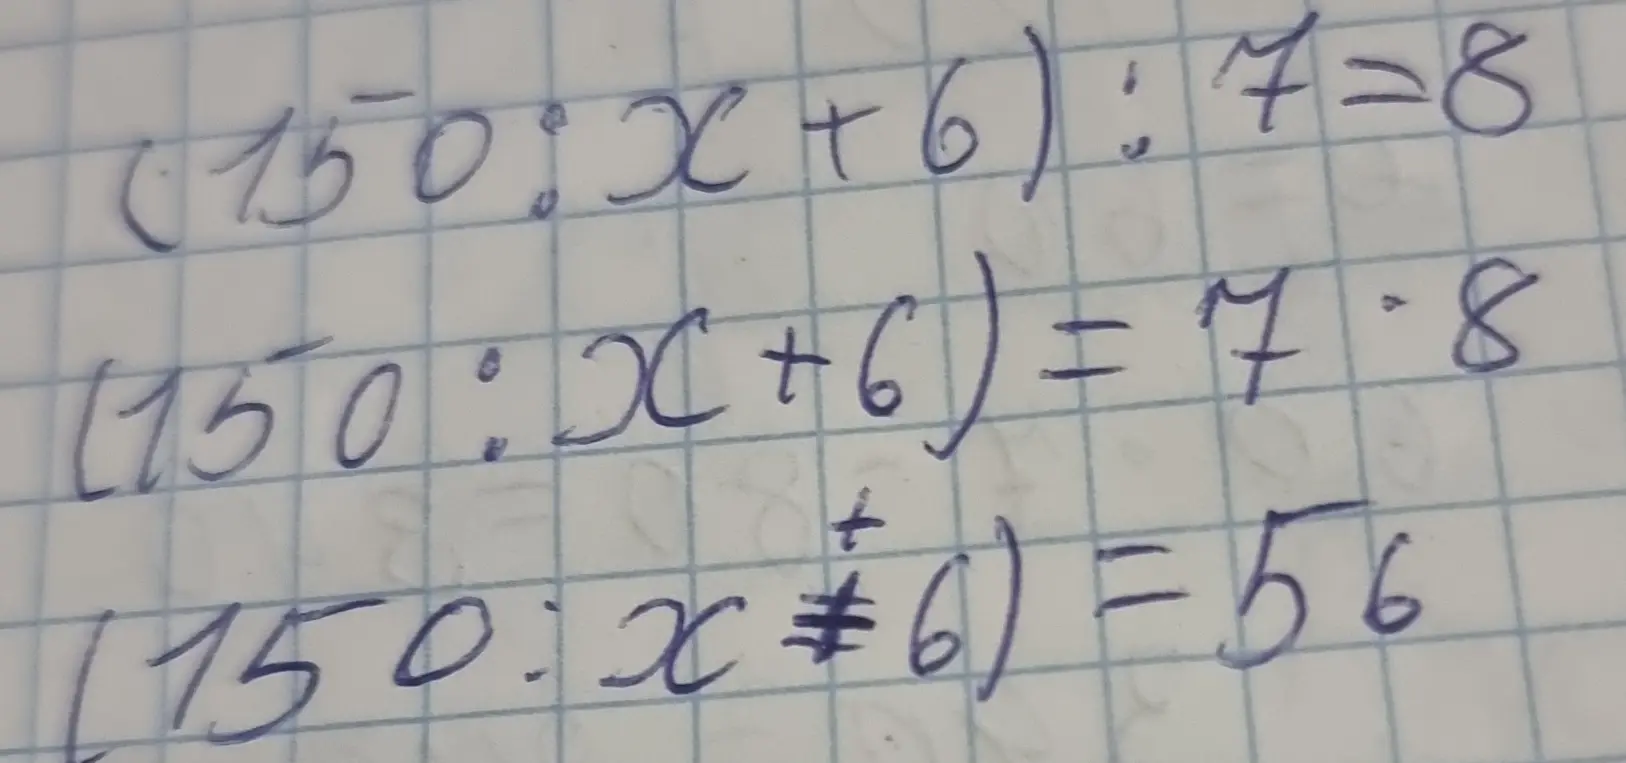 (150 : x + 6) : 7 = 8
(150 : x + 6) = 7 · 8
(150 : x + 6) = 56